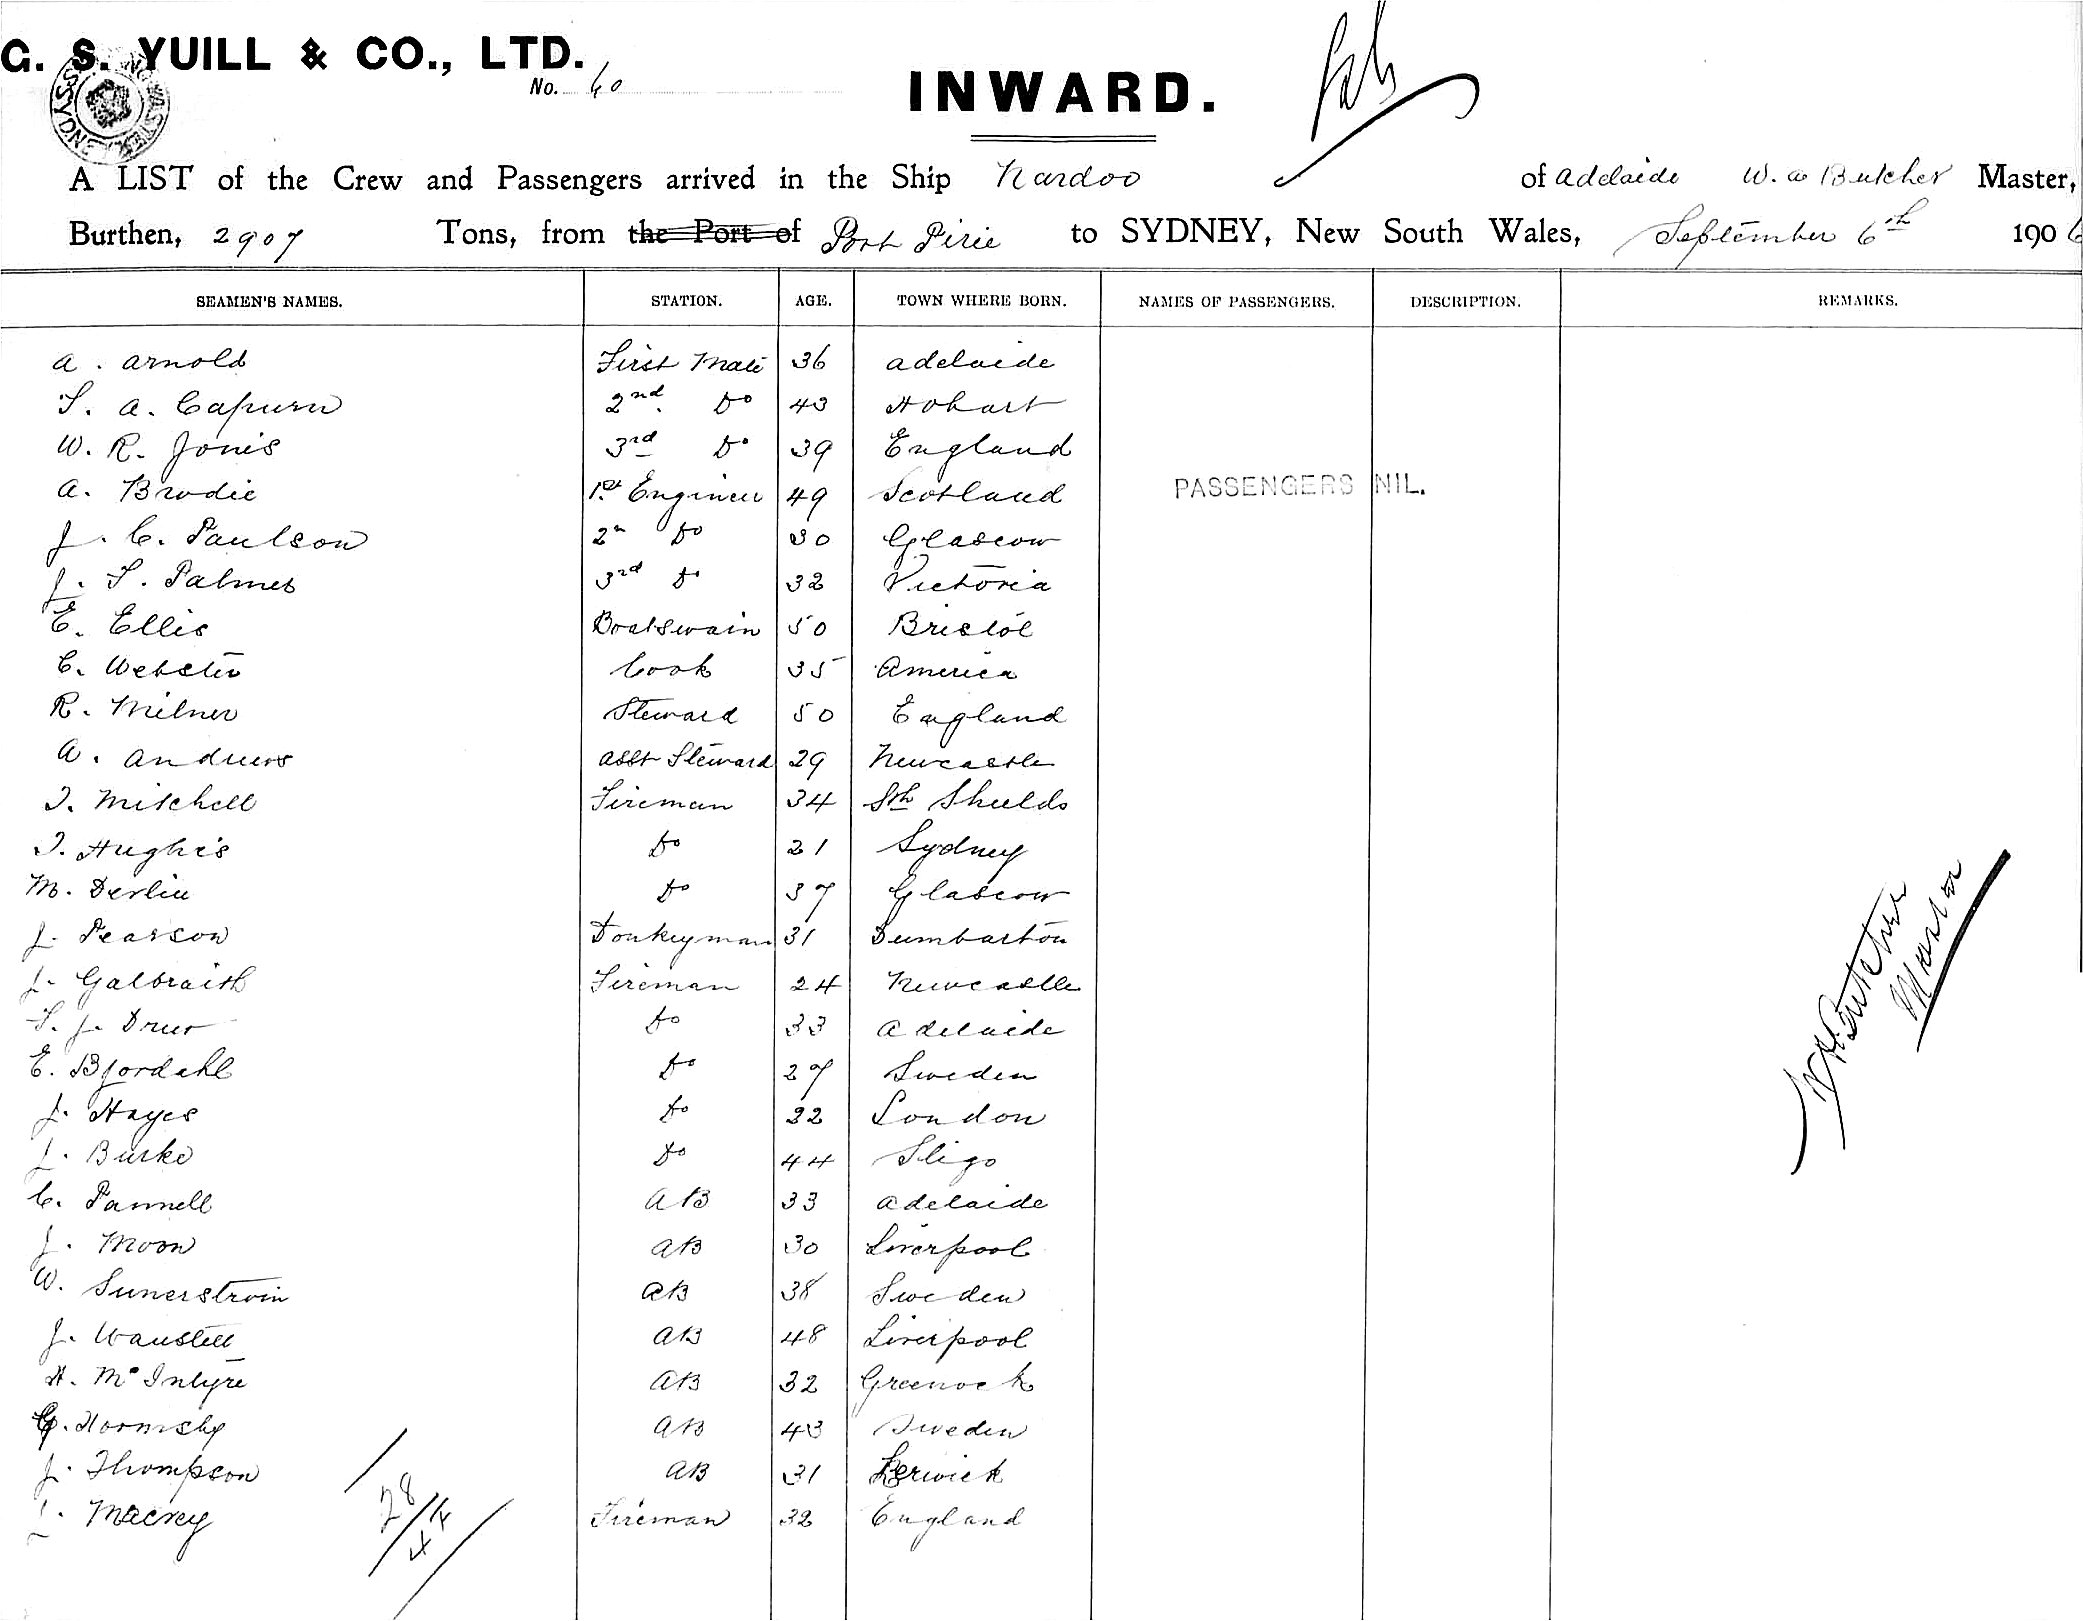 G. S. YUILL & CO., LTD.
No. 60
INWARD.
A LIST of the Crew and Passengers arrived in the Ship Nardoo of Adelaide W. a Butcher Master,
Burthen, 2907 Tons, from the Port of Port Pirie to SYDNEY, New South Wales, September 6th 1906
SEAMEN'S NAMES. STATION. AGE. TOWN WHERE BORN. NAMES OF PASSENGERS. DESCRIPTION. REMARKS.
A. Arnold First Mate 36 Adelaide
S. A. Capurn 2nd. Do 43 Hobart
W. R. Jones 3rd Do 39 England
A. Brodie 1st Engineer 49 Scotland
PASSENGERS NIL.
J. C. Paulson 2n Do 30 Glascow
J. S. Palmer 3rd Do 32 Victoria
E. Ellis Boatswain 50 Bristol
C. Webster Cook 35 America
R. Milner Steward 50 England
A. Andrews Asst Steward 29 Newcastle
T. Mitchell Fireman 34 Sth Shields
T. Hughes Do 21 Sydney
M. Devlin Do 37 Glascow
J. Pearson Donkeyman 31 Dumbarton
J. Galbraith Fireman 24 Newcastle
S. J. Drew Do 33 Adelaide
E. Bjordahl Do 27 Sweden
J. Hayes Do 22 London
J. Burke Do 44 Sligo
C. Pannell AB 33 Adelaide
J. Moon AB 30 Liverpool
W. Sunerstroin AB 38 Sweden
J. Wanstell AB 48 Liverpool
H. Mc Intyre AB 32 Greenock
G. Hormsby AB 43 Sweden
J. Thompson AB 31 Lerwick
J. Macrey Fireman 32 England
28/44
W A Butcher
Master